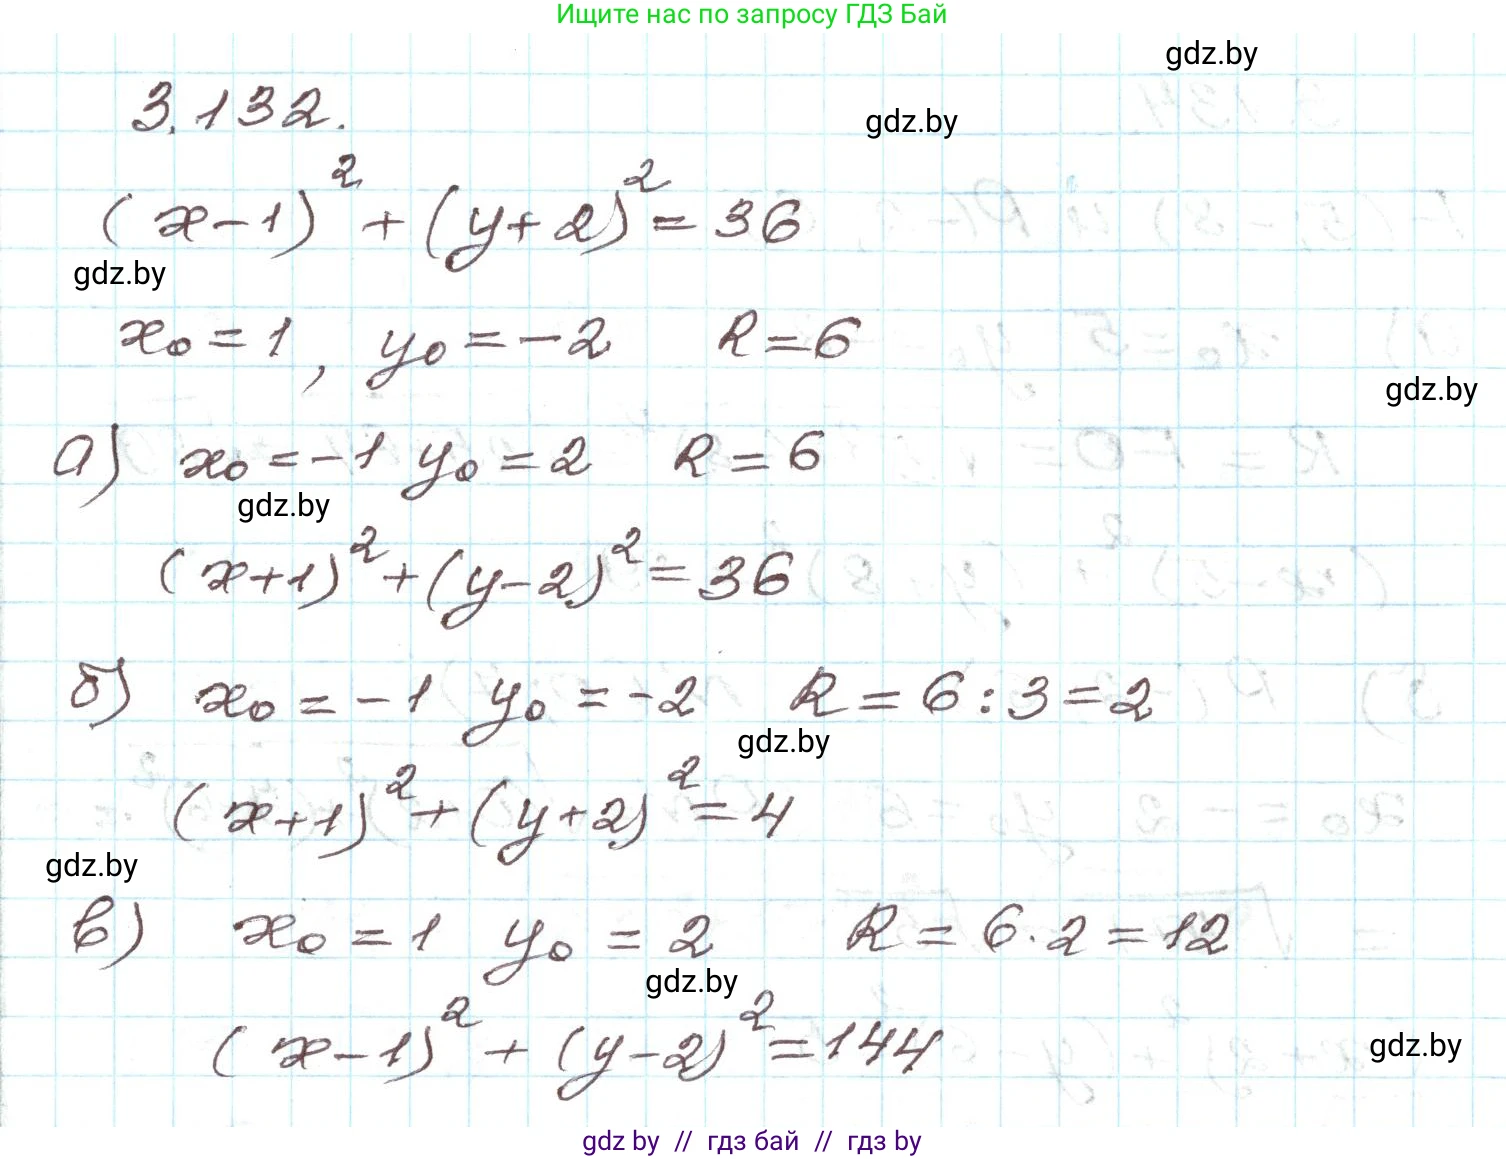 Ищите нас по запросу ГДЗ Бай
gdz.by
3.132.
gdz.by
(x-1)² + (y+2)² = 36
gdz.by
x₀ = 1, y₀ = -2 R = 6
gdz.by
а) x₀ = -1 y₀ = 2 R = 6
gdz.by
(x+1)² + (y-2)² = 36
б) x₀ = -1 y₀ = -2 R = 6 : 3 = 2
gdz.by
(x+1)² + (y+2)² = 4
gdz.by
в) x₀ = 1 y₀ = 2 R = 6 · 2 = 12
gdz.by
(x-1)² + (y-2)² = 144
gdz.by
gdz by // гдз бай // гдз by